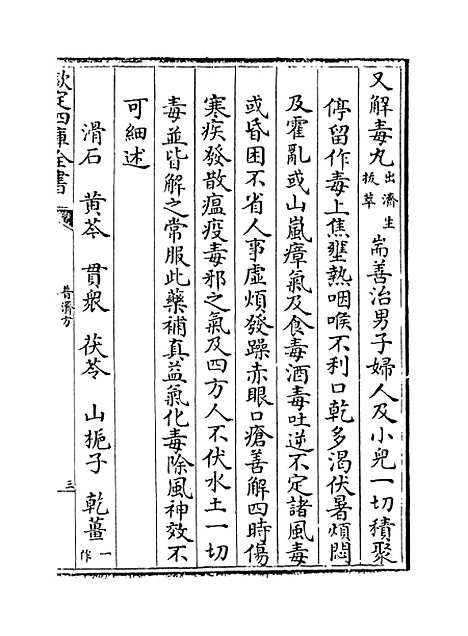 又解毒丸出濟生拔萃 耑善治男子婦人及小兒一切積聚
停留作毒上焦壅熱咽喉不利口乾多渴伏暑煩悶
及霍亂或山嵐瘴氣及食毒酒毒吐逆不定諸風毒
或昏困不省人事虛煩發躁赤眼口瘡善解四時傷
寒疾發散瘟疫毒邪之氣及四方人不伏水土一切
毒並皆解之常服此藥補真益氣化毒除風神效不
可細述
滑石 黄芩 貫衆 茯苓 山梔子 乾薑一作
欽定四庫全書
普濟方
三